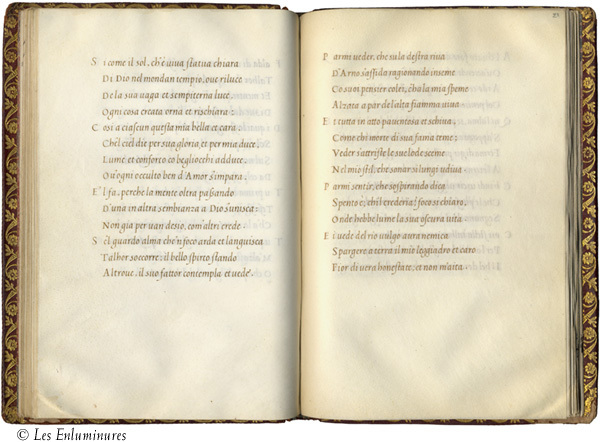 S i come il sol, ch'è viva statua chiara
Di Dio nel mondan tempio, ove riluce
De la sua vaga et sempiterna luce,
Ogni cosa creata orna et rischiara:
C osi a ciascun questa mia bella et cara,
Ch'el ciel diè per sua gloria, et per mia duce,
Lume et conforto co begliocchi adduce,
Ov'ogni occulto ben d'Amor s'impara.
E 'l fa, perche la mente oltra passando
D'una in altra sembianza a Dio s'unisca:
Non gia per van desio, com altri crede
S' el guardo alma che'n foco arda et languisca
Talhor soccorre; il bello spirto stando
Altrove, il suo fattor contempla et vede.
23
P armi veder, che su la destra riva
D'Arno s'assida ragionando inseme
Co suoi pensier colei, ch'a la mia speme
Alzata a par de l'alta fiamma viva
E t tutta in atto paventosa et schiva,
Come chi morte di sua fama teme;
Veder s'attriste le suelo de seme
Nel mio stil, che sonar si lungi udiva
P armi sentir, che sospirando dica
Spento è, ch'il crederia? foco si chiaro,
Onde hebbe lume la sua oscura vita
E t vede del rio vulgo aura nemica
Spargere a terra il mio leggiadro et caro
Fior di vera honestate, et non m'aita.
© Les Enluminures